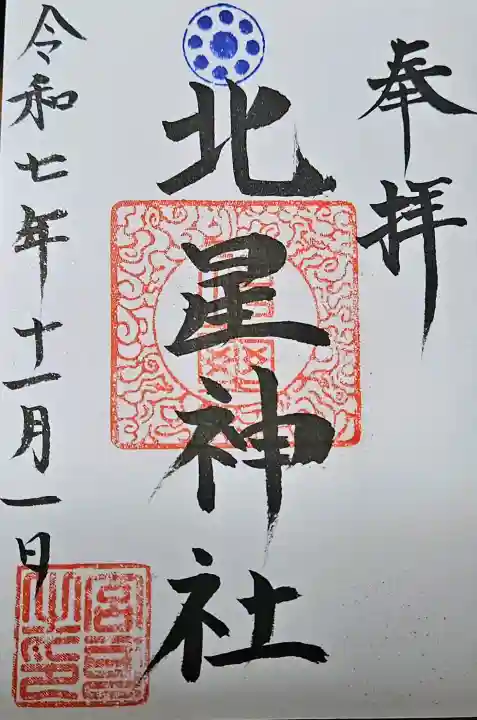 奉拝
北星神社
令和七年十一月一日